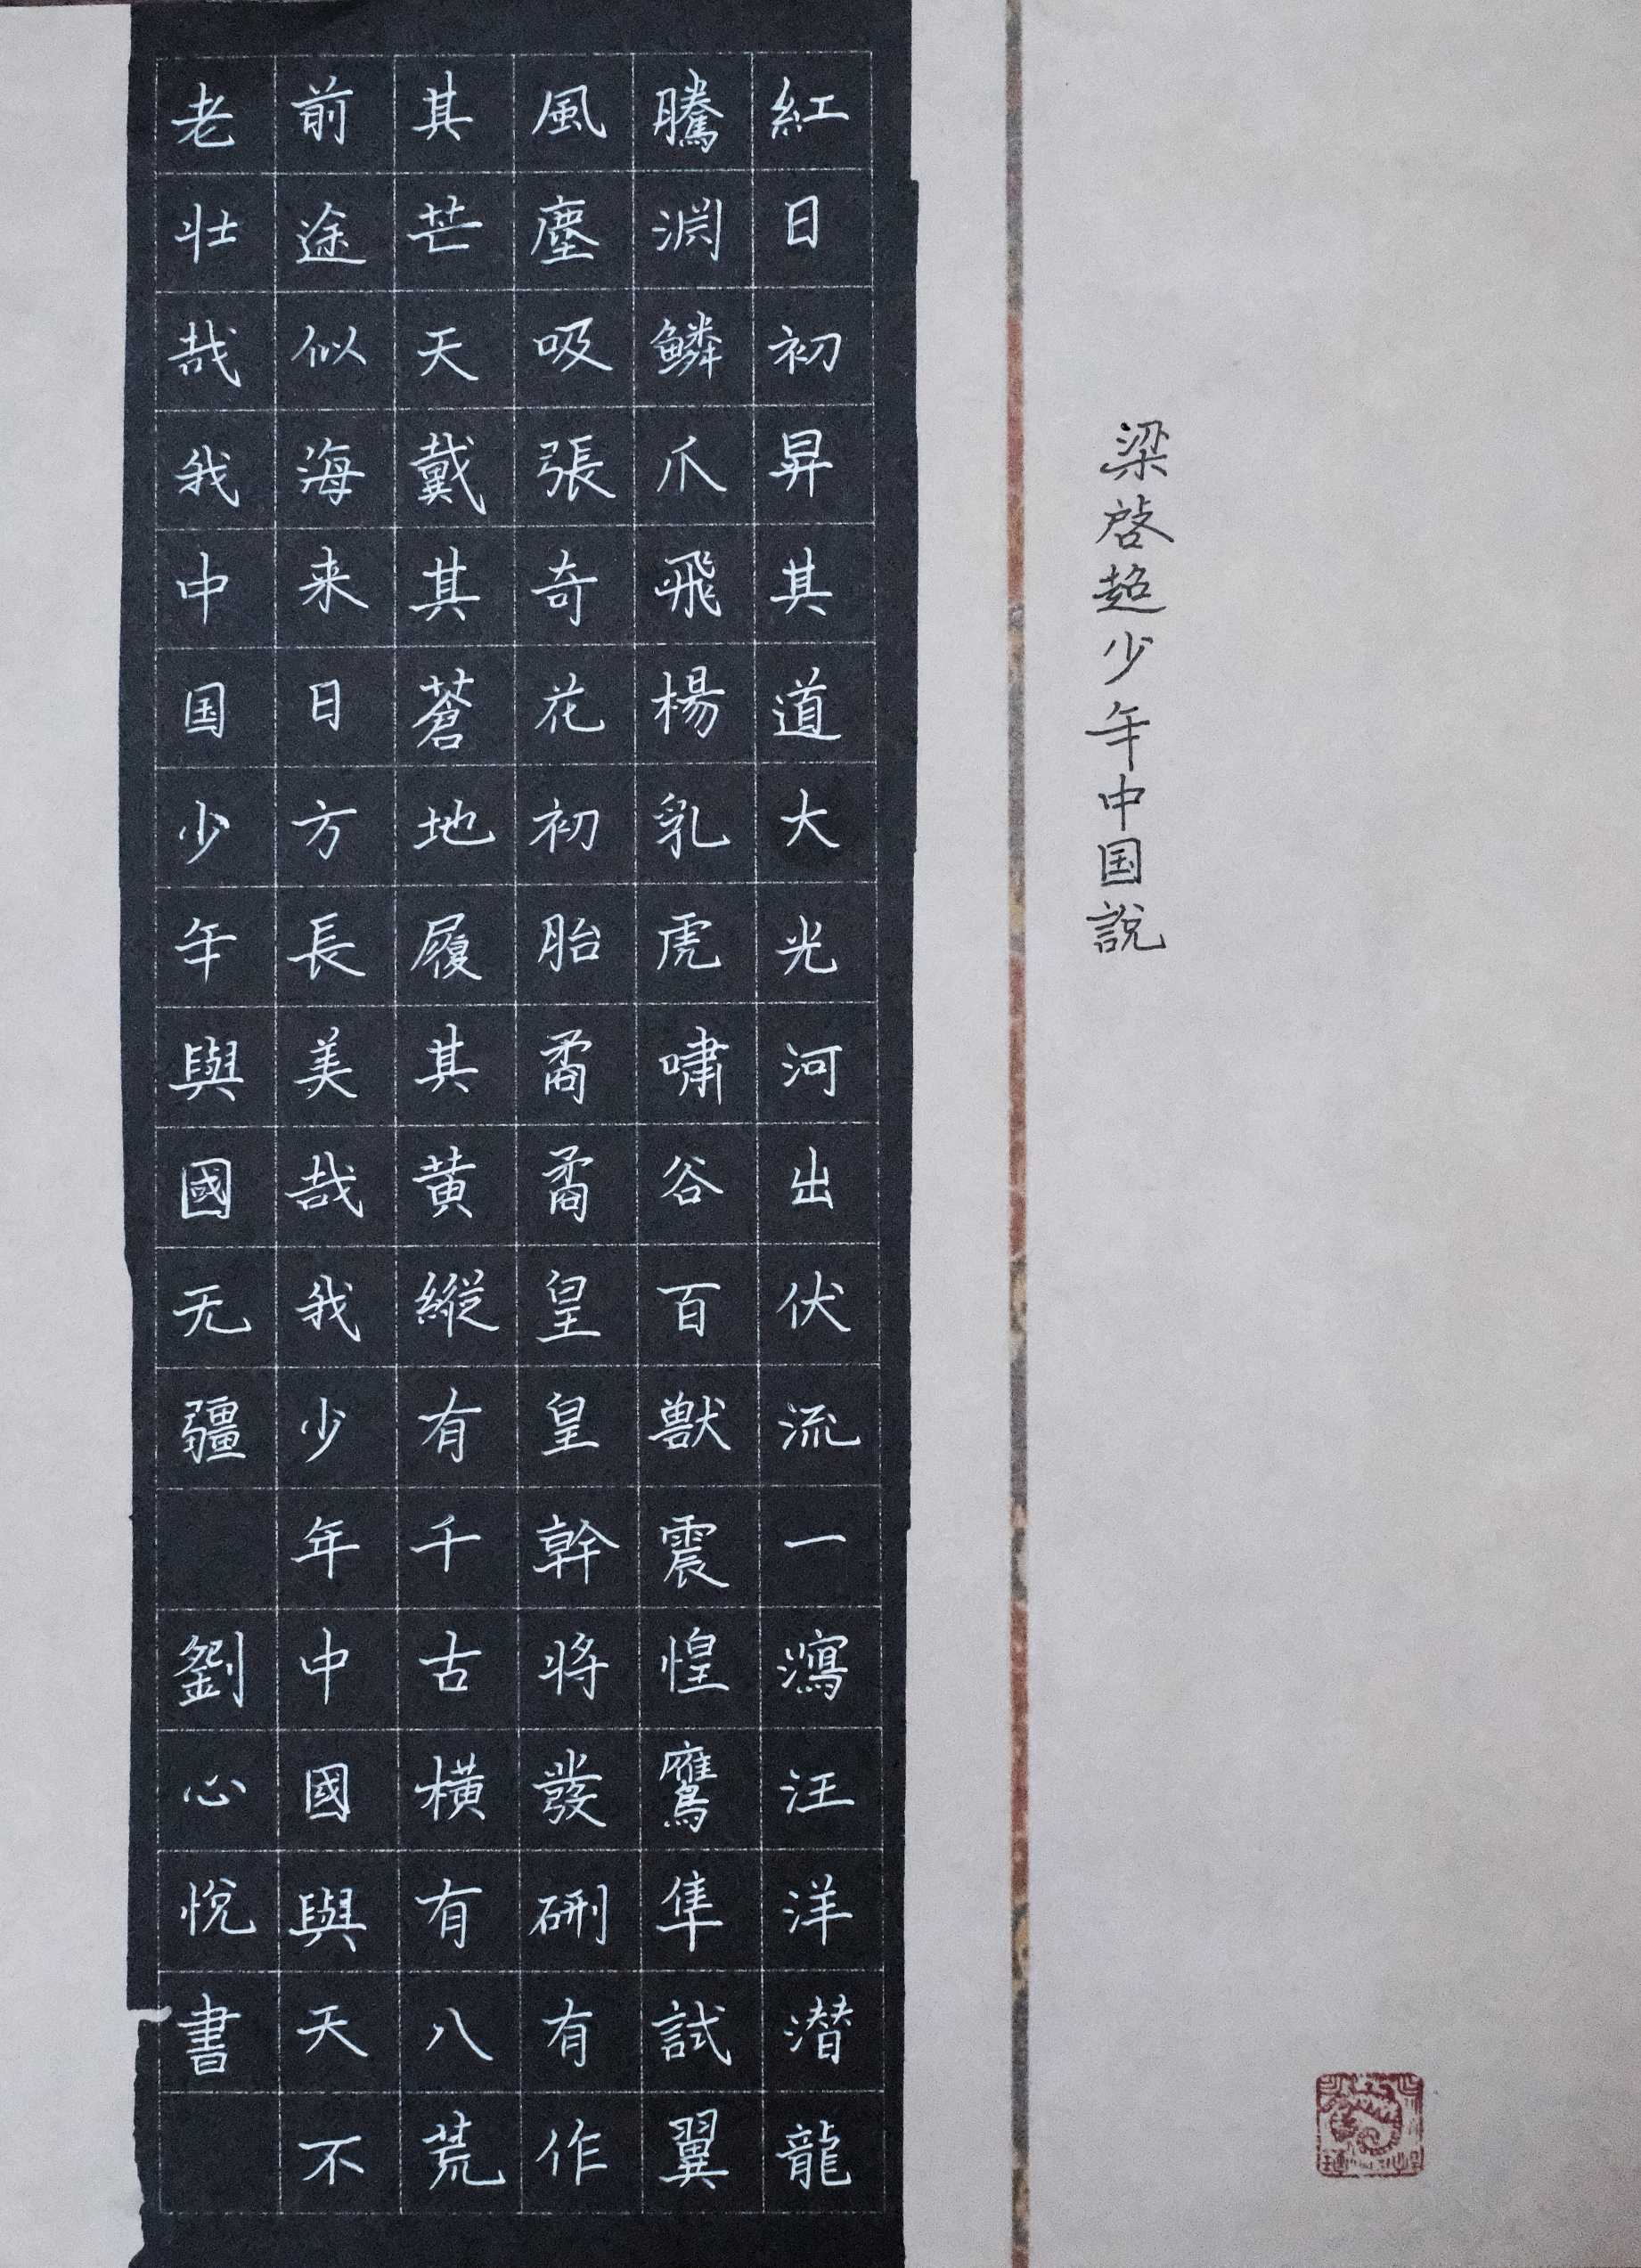 梁啓超少年中国說
紅日初昇其道大光河出伏流一瀉汪洋潜龍
騰淵鳞爪飛楊乳虎嘯谷百獸震惶鷹隼試翼
風塵吸張奇花初胎矞矞皇皇幹将發硎有作
其芒天戴其蒼地履其黄縱有千古橫有八荒
前途似海来日方長美哉我少年中國與天不
老壮哉我中国少年與國无疆 劉心悅書